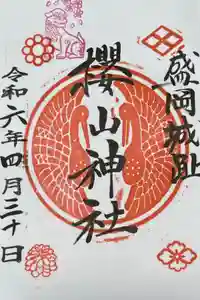 盛岡城趾
櫻山神社
令和六年四月三十日